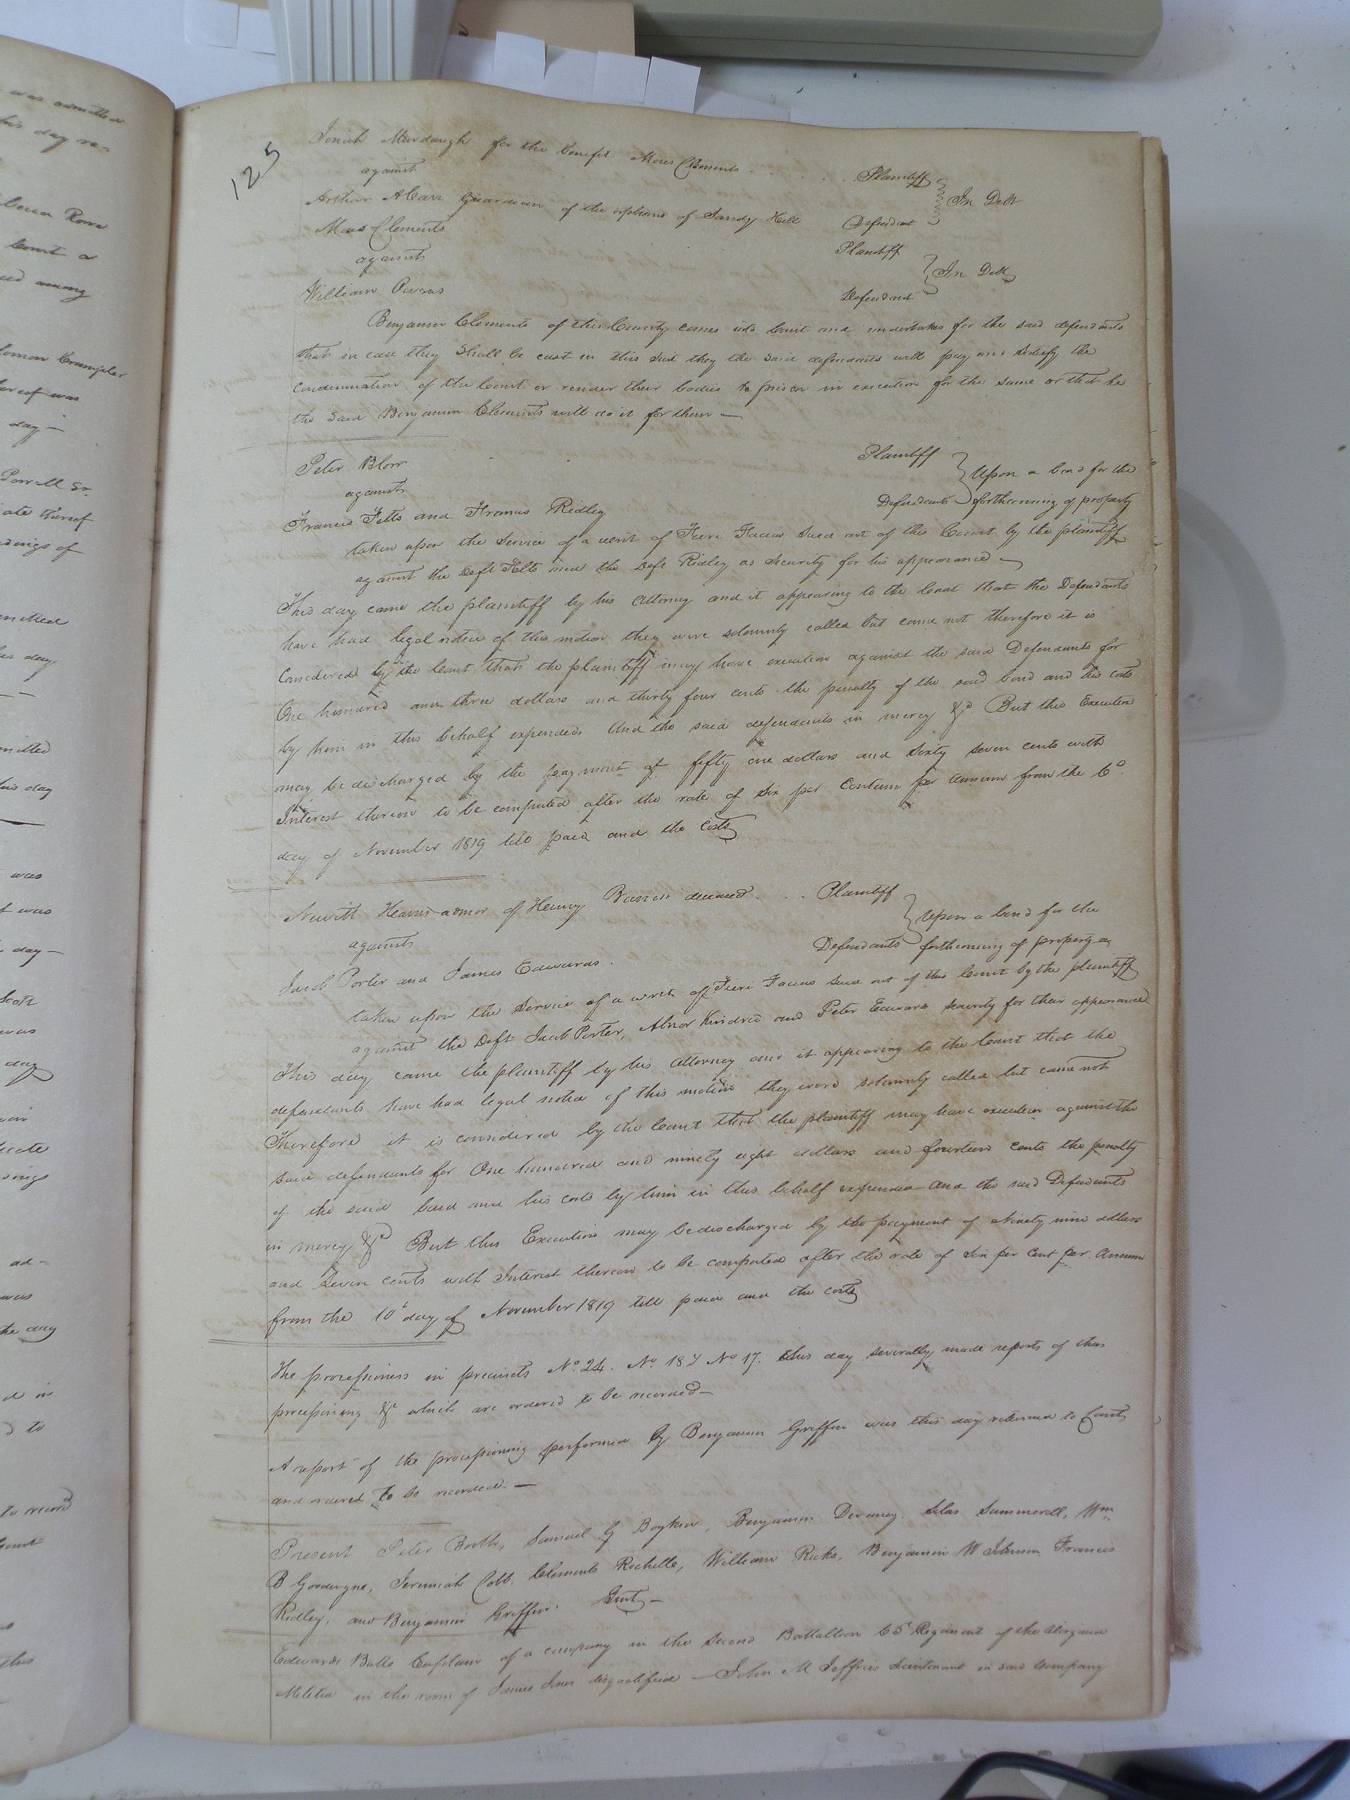 125
Josiah Murdaugh for the benefit Moses Clements . . . . Plaintiff
against In Debt
Arthur A Carr Guardian of the orphans of Sandy Hill Defendant
Moses Clements Plaintiff
against In Debt
William Owens Defendant
Benjamin Clements of this County comes into Court and undertakes for the said defendants
that in case they shall be cast in this suit they the said defendants will pay and satisfy the
condemnation of the Court or render their bodies to prison in execution for the same or that he
the said Benjamin Clements will do it for them —
Peter Blow Plaintiff
against Upon a bond for the
Francis Felts and Thomas Ridley Defendants forthcoming of property
taken upon the Service of a writ of Fieri Facias Sued out of this Court by the plaintiff
against the Deft Felts and the Deft Ridley as Security for his appearance —
This day came the plaintiff by his Attorney and it appearing to the Court that the Defendants
have had legal notice of this motion they were solemnly called but came not therefore it is
Considered by the Court that the plaintiff may have execution against the said Defendants for
One hundred and three dollars and thirty four cents the penalty of the said bond and his costs
by him in this behalf expended And the said defendants in mercy &c But this Execution
may be discharged by the payment of fifty one dollars and Sixty seven cents with
Interest thereon to be computed after the rate of Six per Centum per Annum from the 6th
day of November 1819 till paid and the Costs
Newitt Harris admor of Henry deceased . . . Plaintiff
against Upon a bond for the
Jacob Porter and James Edwards . Defendants forthcoming of property
taken upon the Service of a writ of Fieri Facias Sued out of this Court by the plaintiff
against the Deft Jacob Porter, Abnor Kindred and Peter Edwards security for their appearance
This day came the plaintiff by his Attorney and it appearing to the Court that the
defendants have had legal notice of this motion they were solemnly called but came not
Therefore it is considered by the Court that the plaintiff may have execution against the
said defendants for One hundred and ninety eight dollars and fourteen cents the penalty
of the said bond and his costs by him in this behalf expended And the said Defendants
in mercy &c But this Execution may be discharged by the payment of Ninety nine dollars
and Seven cents with Interest thereon to be computed after the rate of Six per Cent per Annum
from the 10th day of November 1819 till paid and the costs
The processioners in precincts No 24. No 18 & No 17. this day severally made reports of their
processioning &c which are ordered to be recorded —
A report of the processioning performed by Benjamin Griffin was this day returned to Court
and ordered to be recorded. —
Present Peter Booth, Samuel G Boykin, Benjamin Devaney. Silas Summerell, Wm
B Goodwyn, Jeremiah Cobb, Clements Rochelle, William Ricks, Benjamin W Johnson Francis
Ridley, and Benjamin Griffin. Gent —
Edwards Butts Captain of a company in the Second Battallion 65th Regiment of the Virginia
Militia in the room of James disqualified — John M Jeffries Lieutenant in said Company